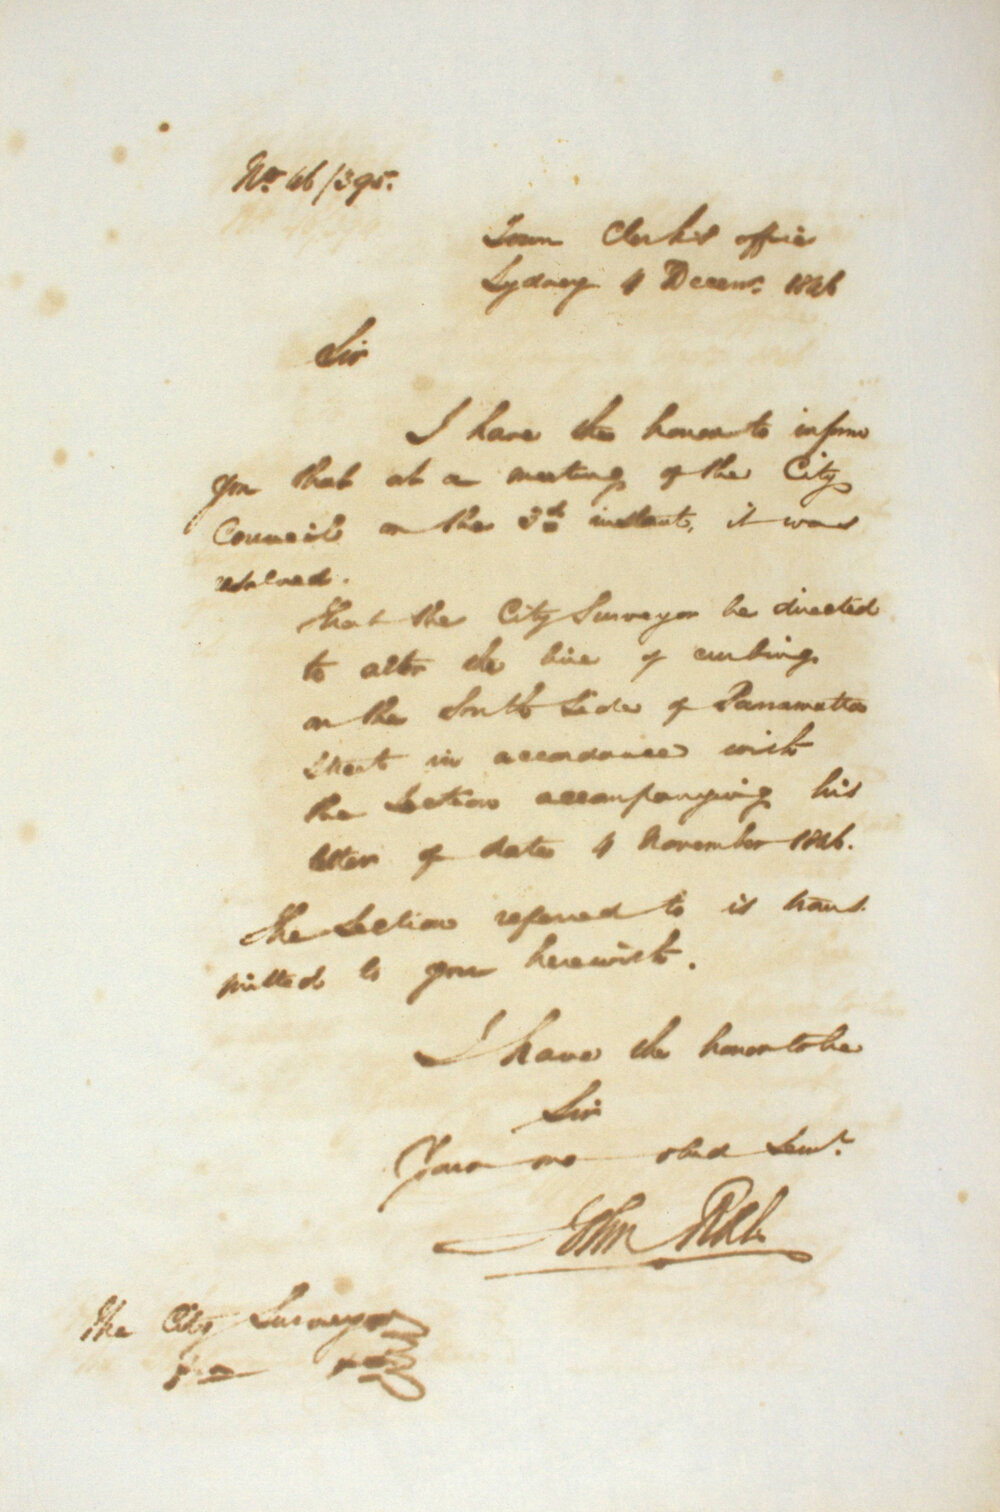 No. 46/395.
Town Clerk's office
Sydney 4 Decemr. 1846
Sir
I have the honor to inform
you that at a meeting of the City
Council on the 3rd instant, it was
resolved.
That the City Surveyor be directed
to alter the line of curbing
on the South Side of Parramatta
Street in accordance with
the Section accompanying his
letter of date 4 November 1846.
The Section referred to is trans
mitted to you herewith.
I have the honor to be
Sir
Your mo obed Servt.
John Rae
The City Surveyor